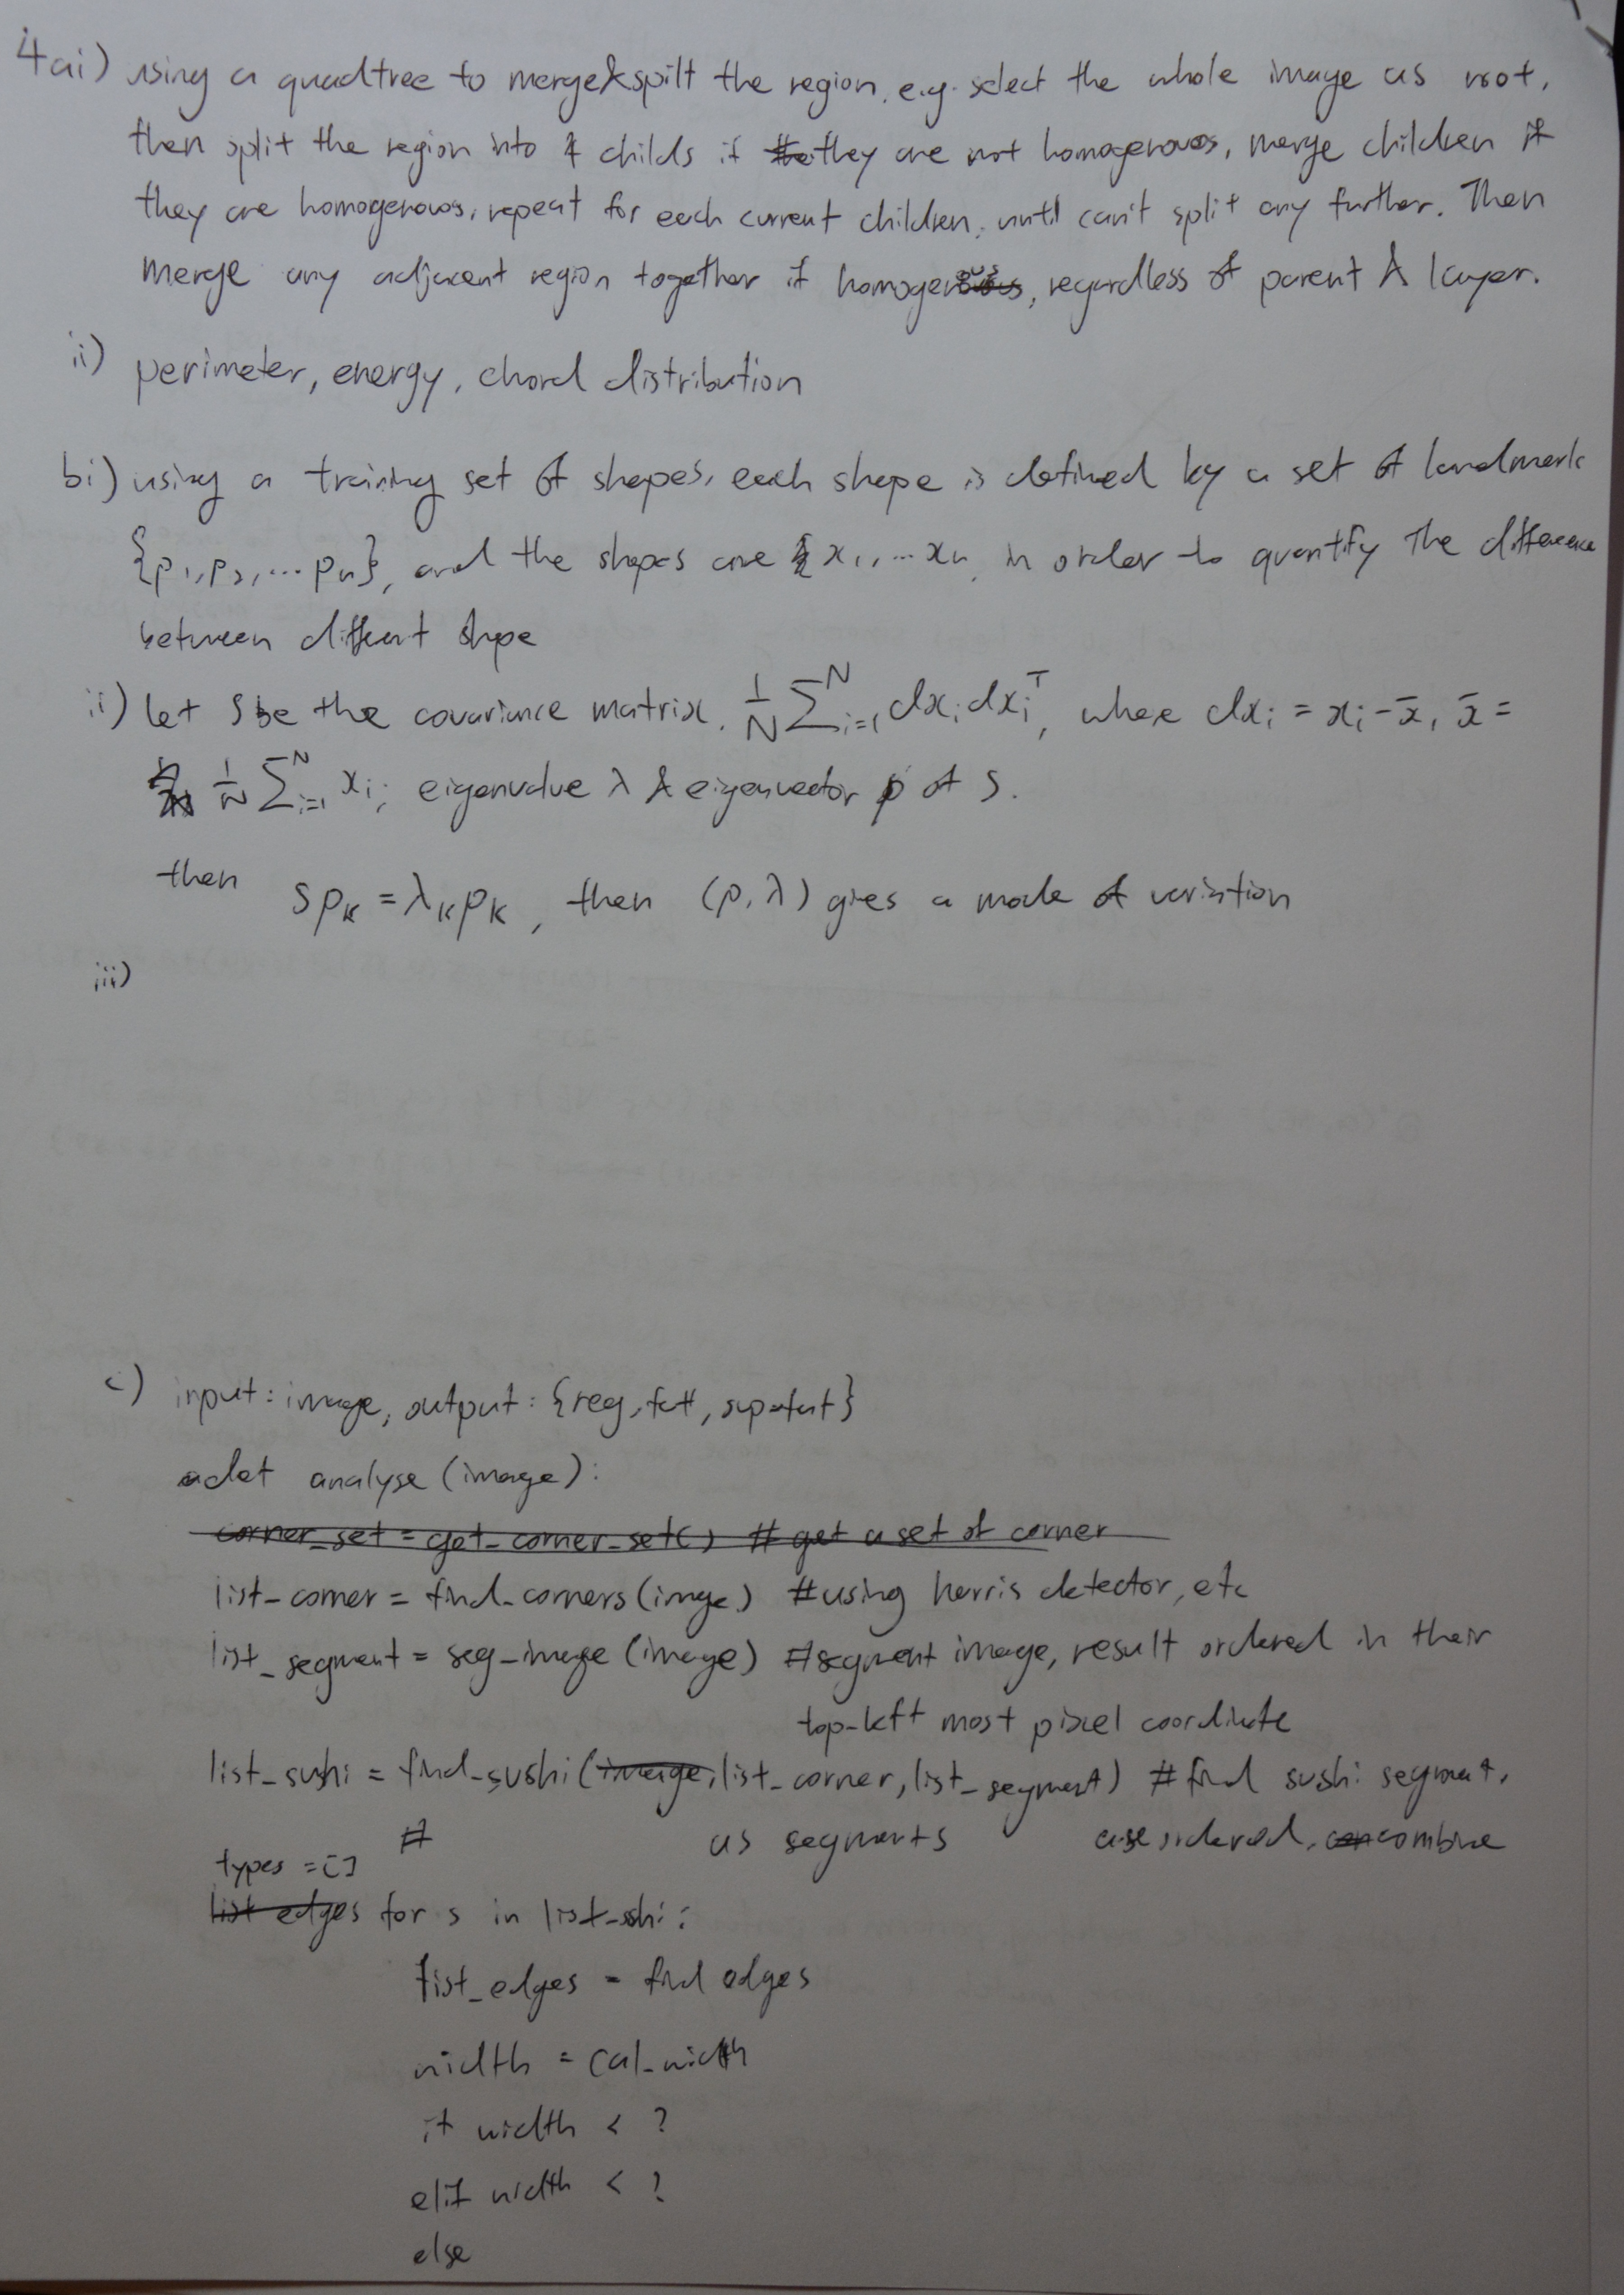 4ai) using a quadtree to merge&spilt the region, e.g. select the whole image as root,
then split the region into 4 childs if they are not homogenous, merge children if
they are homogenous, repeat for each current children, until can't split any further. Then
merge any adjacent region together if homogenous, regardless of parent & layer.
ii) perimeter, energy, chord distribution
bi) using a training set of shapes, each shape is defined by a set of landmark
{p1,p2,...pn}, and the shapes are x1,...xn, in order to quantify the difference
between different shpe
ii) let S be the covariance matrix. 1/N Σ^N_{i=1} dx_i dx_i^T, where dx_i = x_i - x̄, x̄ =
1/N Σ^N_{i=1} x_i; eigenvalue λ & eigenvector p of S.
then Sp_K = λ_K p_K, then (p,λ) gives a mode of variation
iii)
c) input: image, output: {reg, fat, supafat}
def analyse (image):
corner_set = get_corner_set() # get a set of corner
list_corner = find_corners(image) #using harris detector, etc
list_segment = seg_image (image) #segment image, result ordered in their
top-left most pixel coordinate
list_sushi = find_sushi(image, list_corner, list_segment) # find sushi segment,
# as segments are ordered, combine
types = []
list edges for s in list_sshi:
list_edges = find edges
width = cal_width
if width < ?
elif width < ?
else